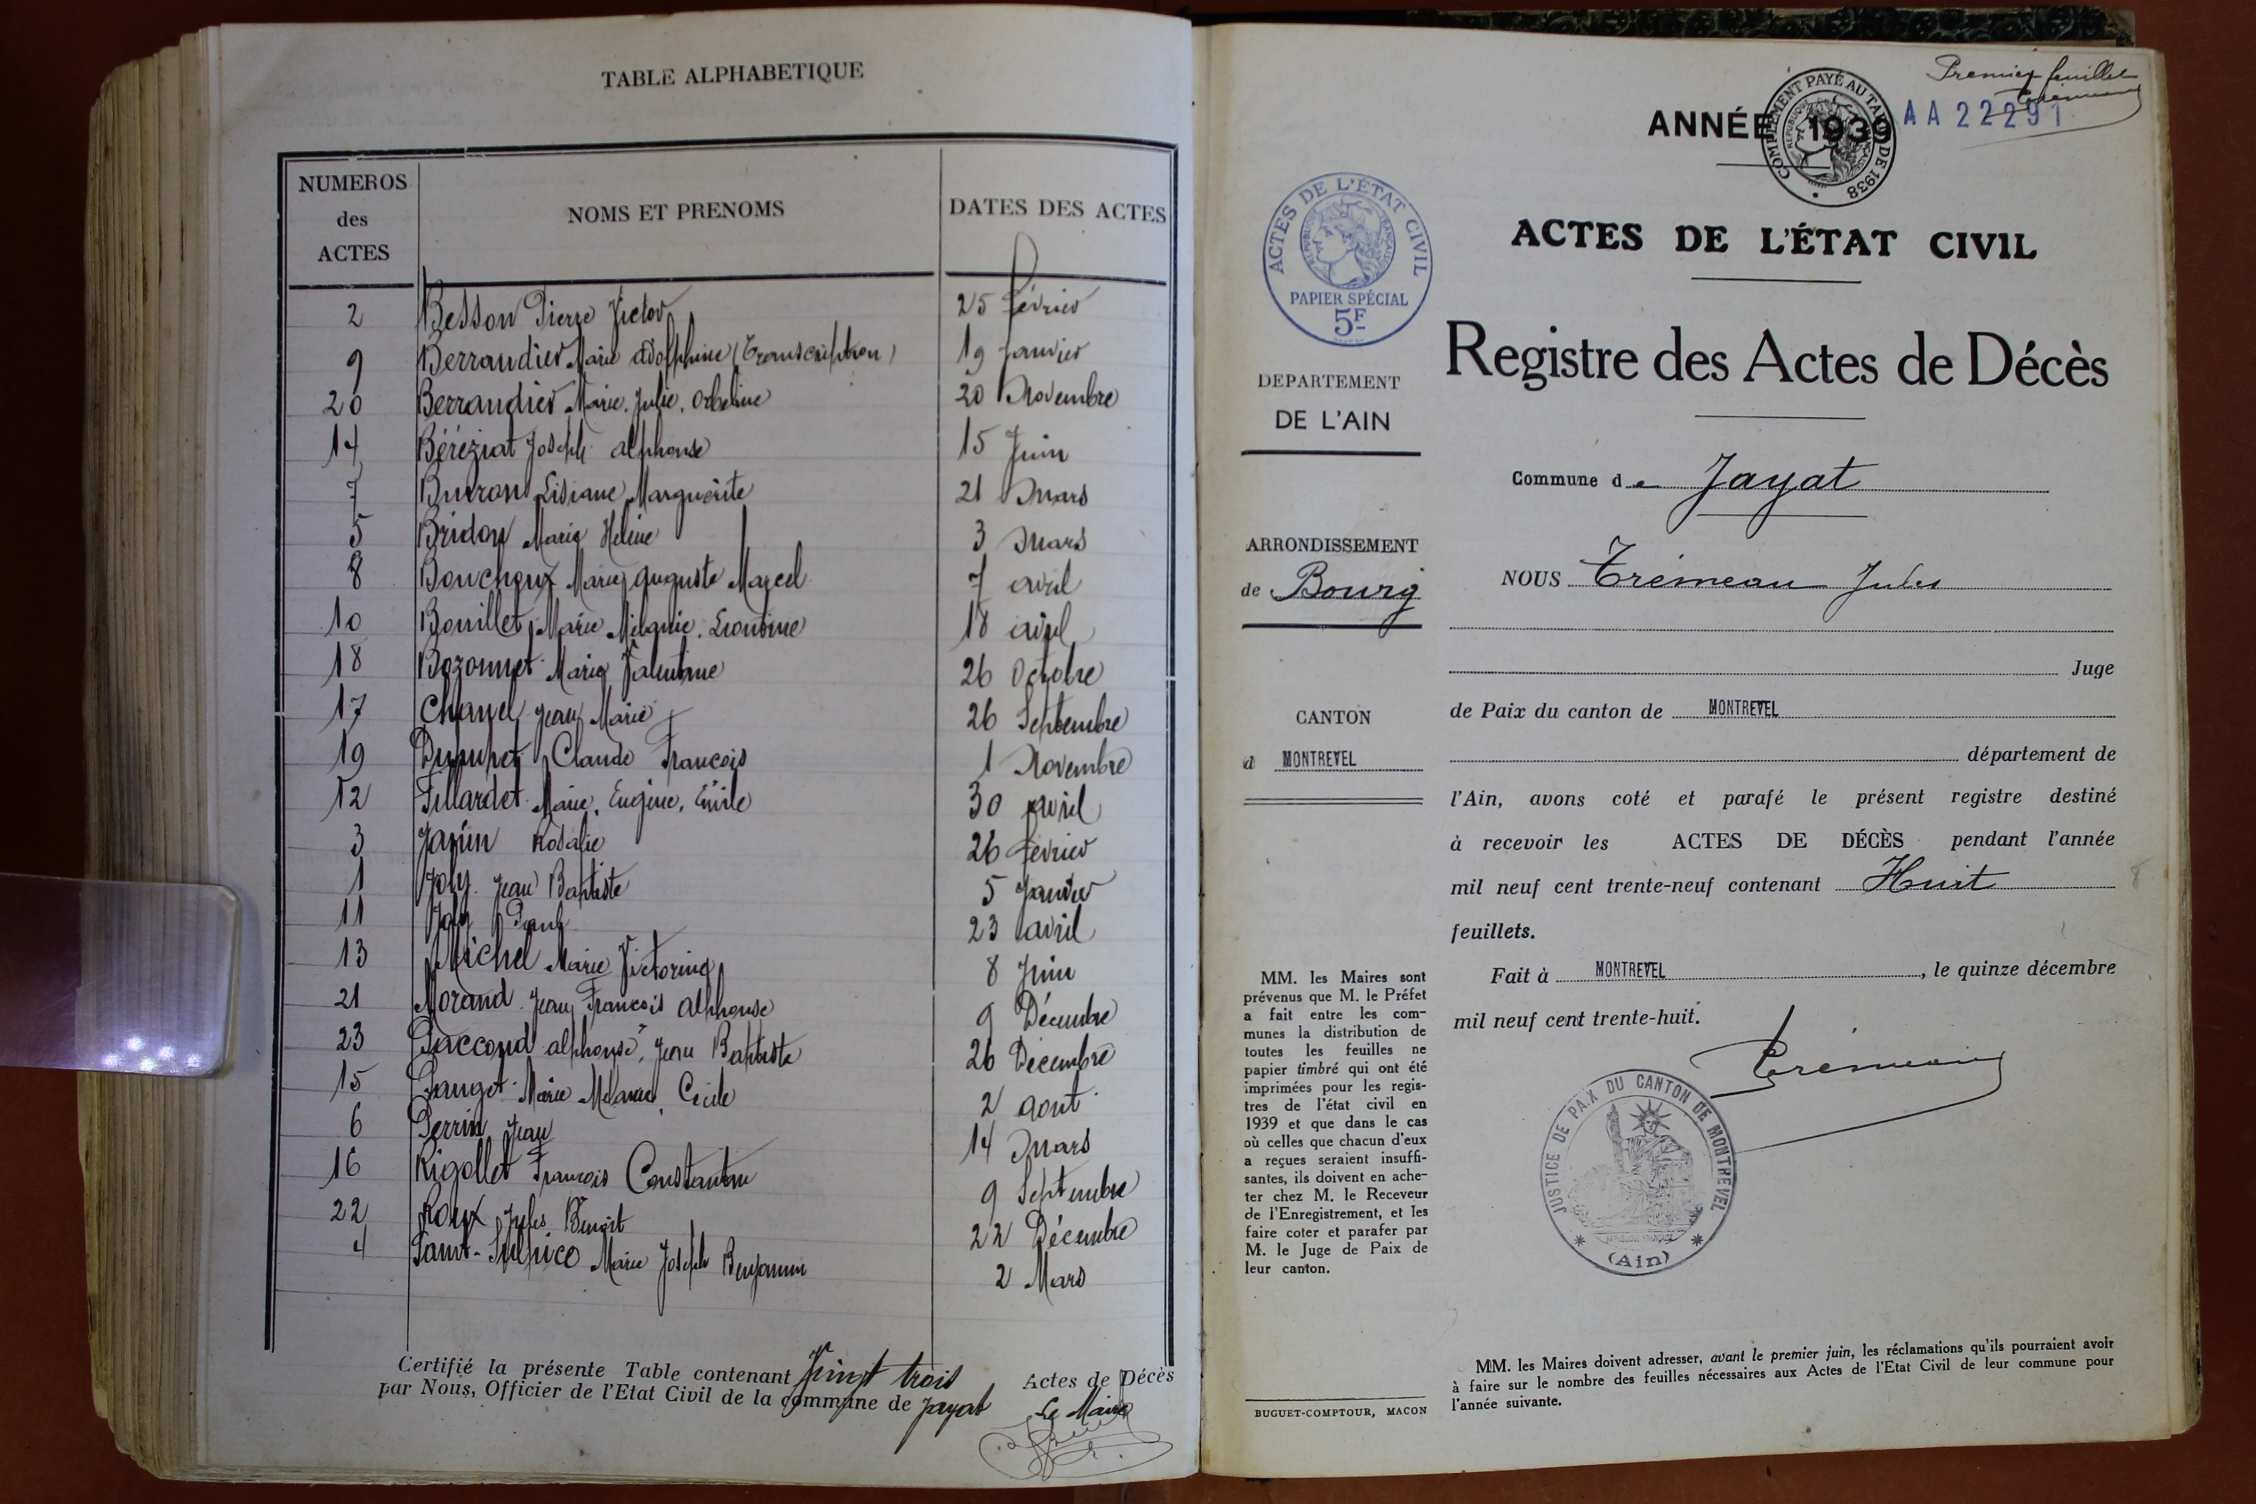 TABLE ALPHABETIQUE
NUMEROS des ACTES
NOMS ET PRENOMS
DATES DES ACTES
2 Besson Pierre Victor 25 Février
9 Berrandier Marie Adolphine (Transcription) 19 Janvier
20 Berrandier Marie Julie 20 Novembre
14 Béréziat Joseph Alphonse 15 Juin
7 Buiron Lisiane Marguerite 21 Mars
5 Bridon Marie Hélène 3 Mars
8 Bouchoux Marie Auguste Marcel 7 avril
10 Bouillet Marie Mélanie Léontine 18 avril
18 Bozonnet Marie Valentine 26 Octobre
17 Chanel Jean Marie 26 Septembre
19 Claude François 1 Novembre
12 Fillardet Marie, Eugène, Emile 30 avril
3 Janin Rosalie 26 Février
1 Joly Jean Baptiste 5 Janvier
11 Joly Paul 23 avril
13 Michel Marie Victorine 8 Juin
21 Morand Jean François Alphonse 9 Décembre
23 Paccoud alphonse, Jean Baptiste 26 Décembre
15 Pauget Marie Mélanie Cécile 2 aout
6 Perrin Jean 14 Mars
16 Rigollet François Constantin 9 Septembre
22 Roux Jules Benoit 22 Décembre
4 Saint-Sulpice Marie Joseph Benjamin 2 Mars
Certifié la présente Table contenant Vingt trois Actes de Décès
par Nous, Officier de l'Etat Civil de la commune de Jayat
Le Maire
Premier feuillet
Trémeau
ANNÉE 1939
AA 22291
COMPLEMENT PAYÉ AU TARIF DE 1938
REPUBLIQUE FRANÇAISE
ACTES DE L'ÉTAT CIVIL
REPUBLIQUE FRANÇAISE
PAPIER SPÉCIAL
5F
ACTES DE L'ÉTAT CIVIL
Registre des Actes de Décès
DEPARTEMENT
DE L'AIN
ARRONDISSEMENT
de Bourg
CANTON
d MONTREVEL
Commune de Jayat
NOUS Trémeau Jules
Juge
de Paix du canton de MONTREVEL
département de
l'Ain, avons coté et parafé le présent registre destiné
à recevoir les ACTES DE DÉCÈS pendant l'année
mil neuf cent trente-neuf contenant Huit 8
feuillets.
Fait à MONTREVEL, le quinze décembre
mil neuf cent trente-huit.
Trémeau
JUSTICE DE PAIX DU CANTON DE MONTREVEL
(Ain)
MM. les Maires sont
prévenus que M. le Préfet
a fait entre les com-
munes la distribution de
toutes les feuilles ne
papier timbré qui ont été
imprimées pour les regis-
tres de l'état civil en
1939 et que dans le cas
où celles que chacun d'eux
a reçues seraient insuffi-
santes, ils doivent en ache-
ter chez M. le Receveur
de l'Enregistrement, et les
faire coter et parafer par
M. le Juge de Paix de
leur canton.
BUGUET-COMPTOUR, MACON
MM. les Maires doivent adresser, avant le premier juin, les réclamations qu'ils pourraient avoir
à faire sur le nombre des feuilles nécessaires aux Actes de l'Etat Civil de leur commune pour
l'année suivante.